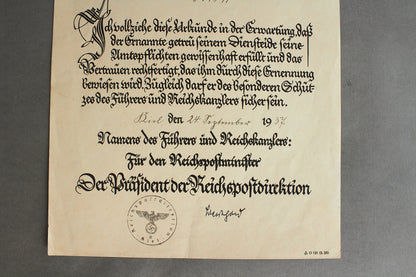 Ich vollziehe diese Urkunde in der Erwartung, daß
der Ernannte getreu seinem Diensteide seine
Amtspflichten gewissenhaft erfüllt und das
Vertrauen rechtfertigt, das ihm durch diese Ernennung
bewiesen wird. Zugleich darf er des besonderen Schut-
zes des Führers und Reichskanzlers sicher sein.
Kiel den 24. September 1937
Namens des Führers und Reichskanzlers:
Für den Reichspostminister
Der Präsident der Reichspostdirektion